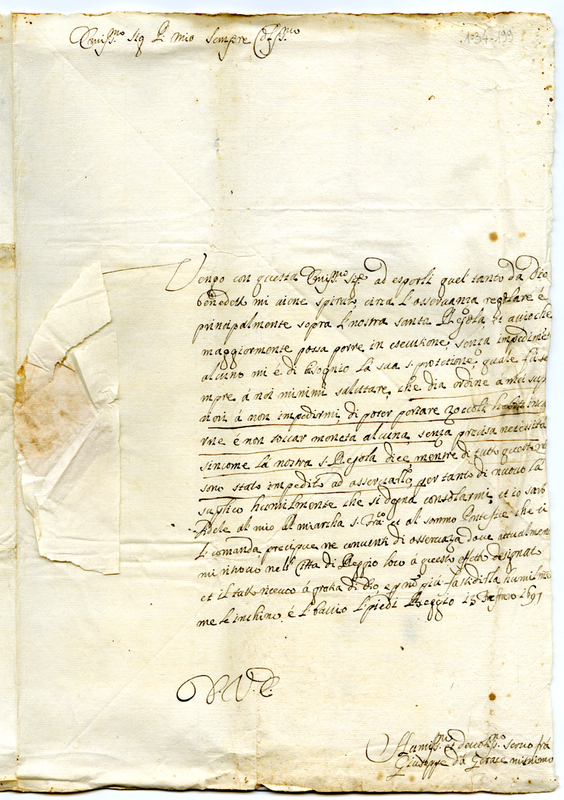 Emiss.mo sig P mio sempre Oss.mo
1-34-199
Vengo con questa Emiss.mo sig.r ad esporli quel tanto da Dio
benedeto mi viene spirato, circa l'osservanza regolare è
principalmente sopra l'nostra santa Regola, et acioche
maggiormente possa porre in esecutione, senza impedimento
alcuno mi è di bisognio la sua s. protetione, quale fu se
mpre à noi minimi salutare, che dia ordine à miei sup
riori à non impedirmi, di poter portare zoccoli,
è non toccar moneta alcuna senza precisa necessità
sincome la nostra s. Regola dice, mentre di tutto questo ne
sono stato impedito ad osservallo, per tanto di nuovo la
suplico humilmente che si degna consolarmi, et io sarò
fidele al mio Patriarcha s. Fran.co et al sommo Pontefice che ci
l'comanda, precipue ne conventi di osservanza dove actualmente
mi ritrovo nell' Città di Reggio loco à questo effetto designat
et il tutto ricevo à gratia di Dio, e p non più fastidirla humilme
me le inchino è l'baccio l'piedi Reggio 15 1697
D. V. E.
Humiss.mo et devotiss.mo servo frà
Giuseppe da Gerace minimo